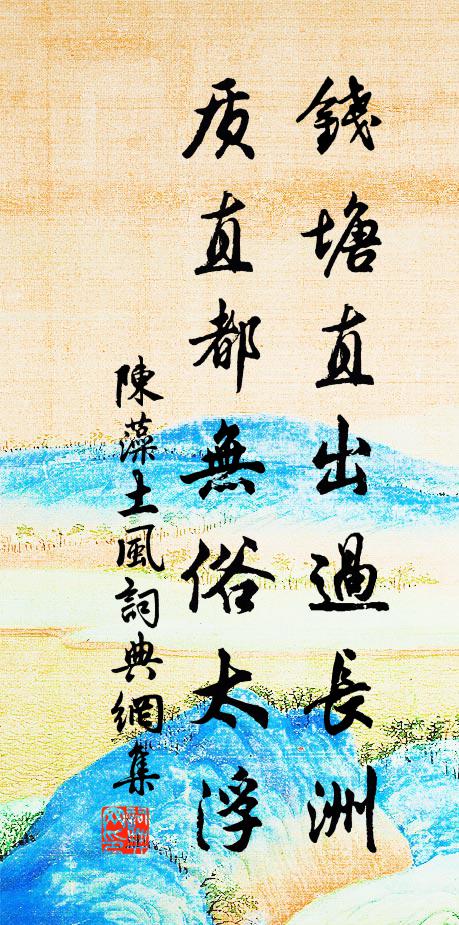 錢塘直出過長洲
质直都無俗太浮
陳藻土風詞典網集